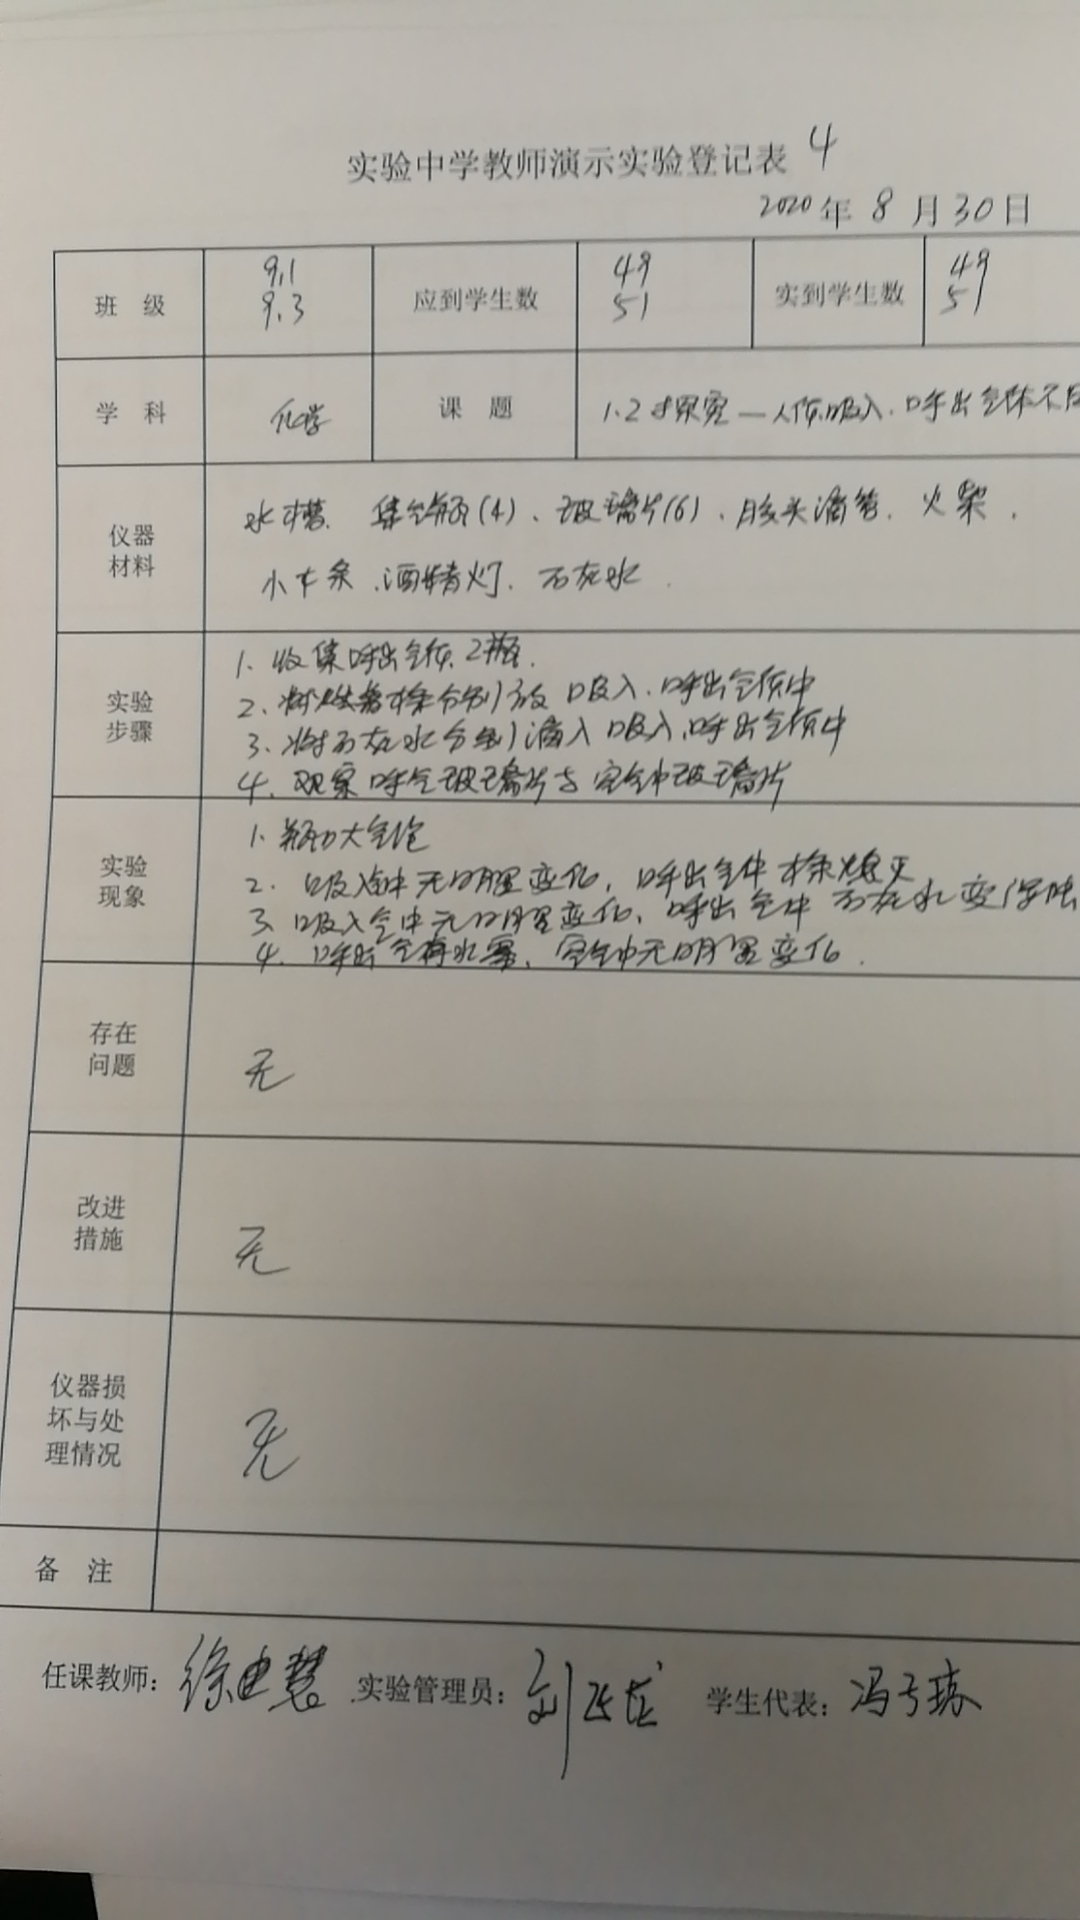 实验中学教师演示实验登记表 4
2020年 8 月 30 日
班 级 9.1 9.3 应到学生数 49 51 实到学生数 49 51
学 科 化学 课 题 1.2探究—人体吸入、呼出气体不
仪器材料
水槽、集气瓶(4)、玻璃片(6)、胶头滴管、火柴、
小木条、酒精灯、石灰水
实验步骤
1、收集呼出气体2瓶
2、将燃着木条分别放吸入、呼出气体中
3、将石灰水分别滴入吸入、呼出气体中
4、观察呼气玻璃片与空气中玻璃片
实验现象
1、瓶口大气泡
2、吸入气中无明显变化,呼出气中木条熄灭
3、吸入气中无明显变化,呼出气中石灰水变浑浊
4、呼出气有水雾,空气中无明显变化.
存在问题
无
改进措施
无
仪器损坏与处理情况
无
备 注
任课教师: 实验管理员: 学生代表: